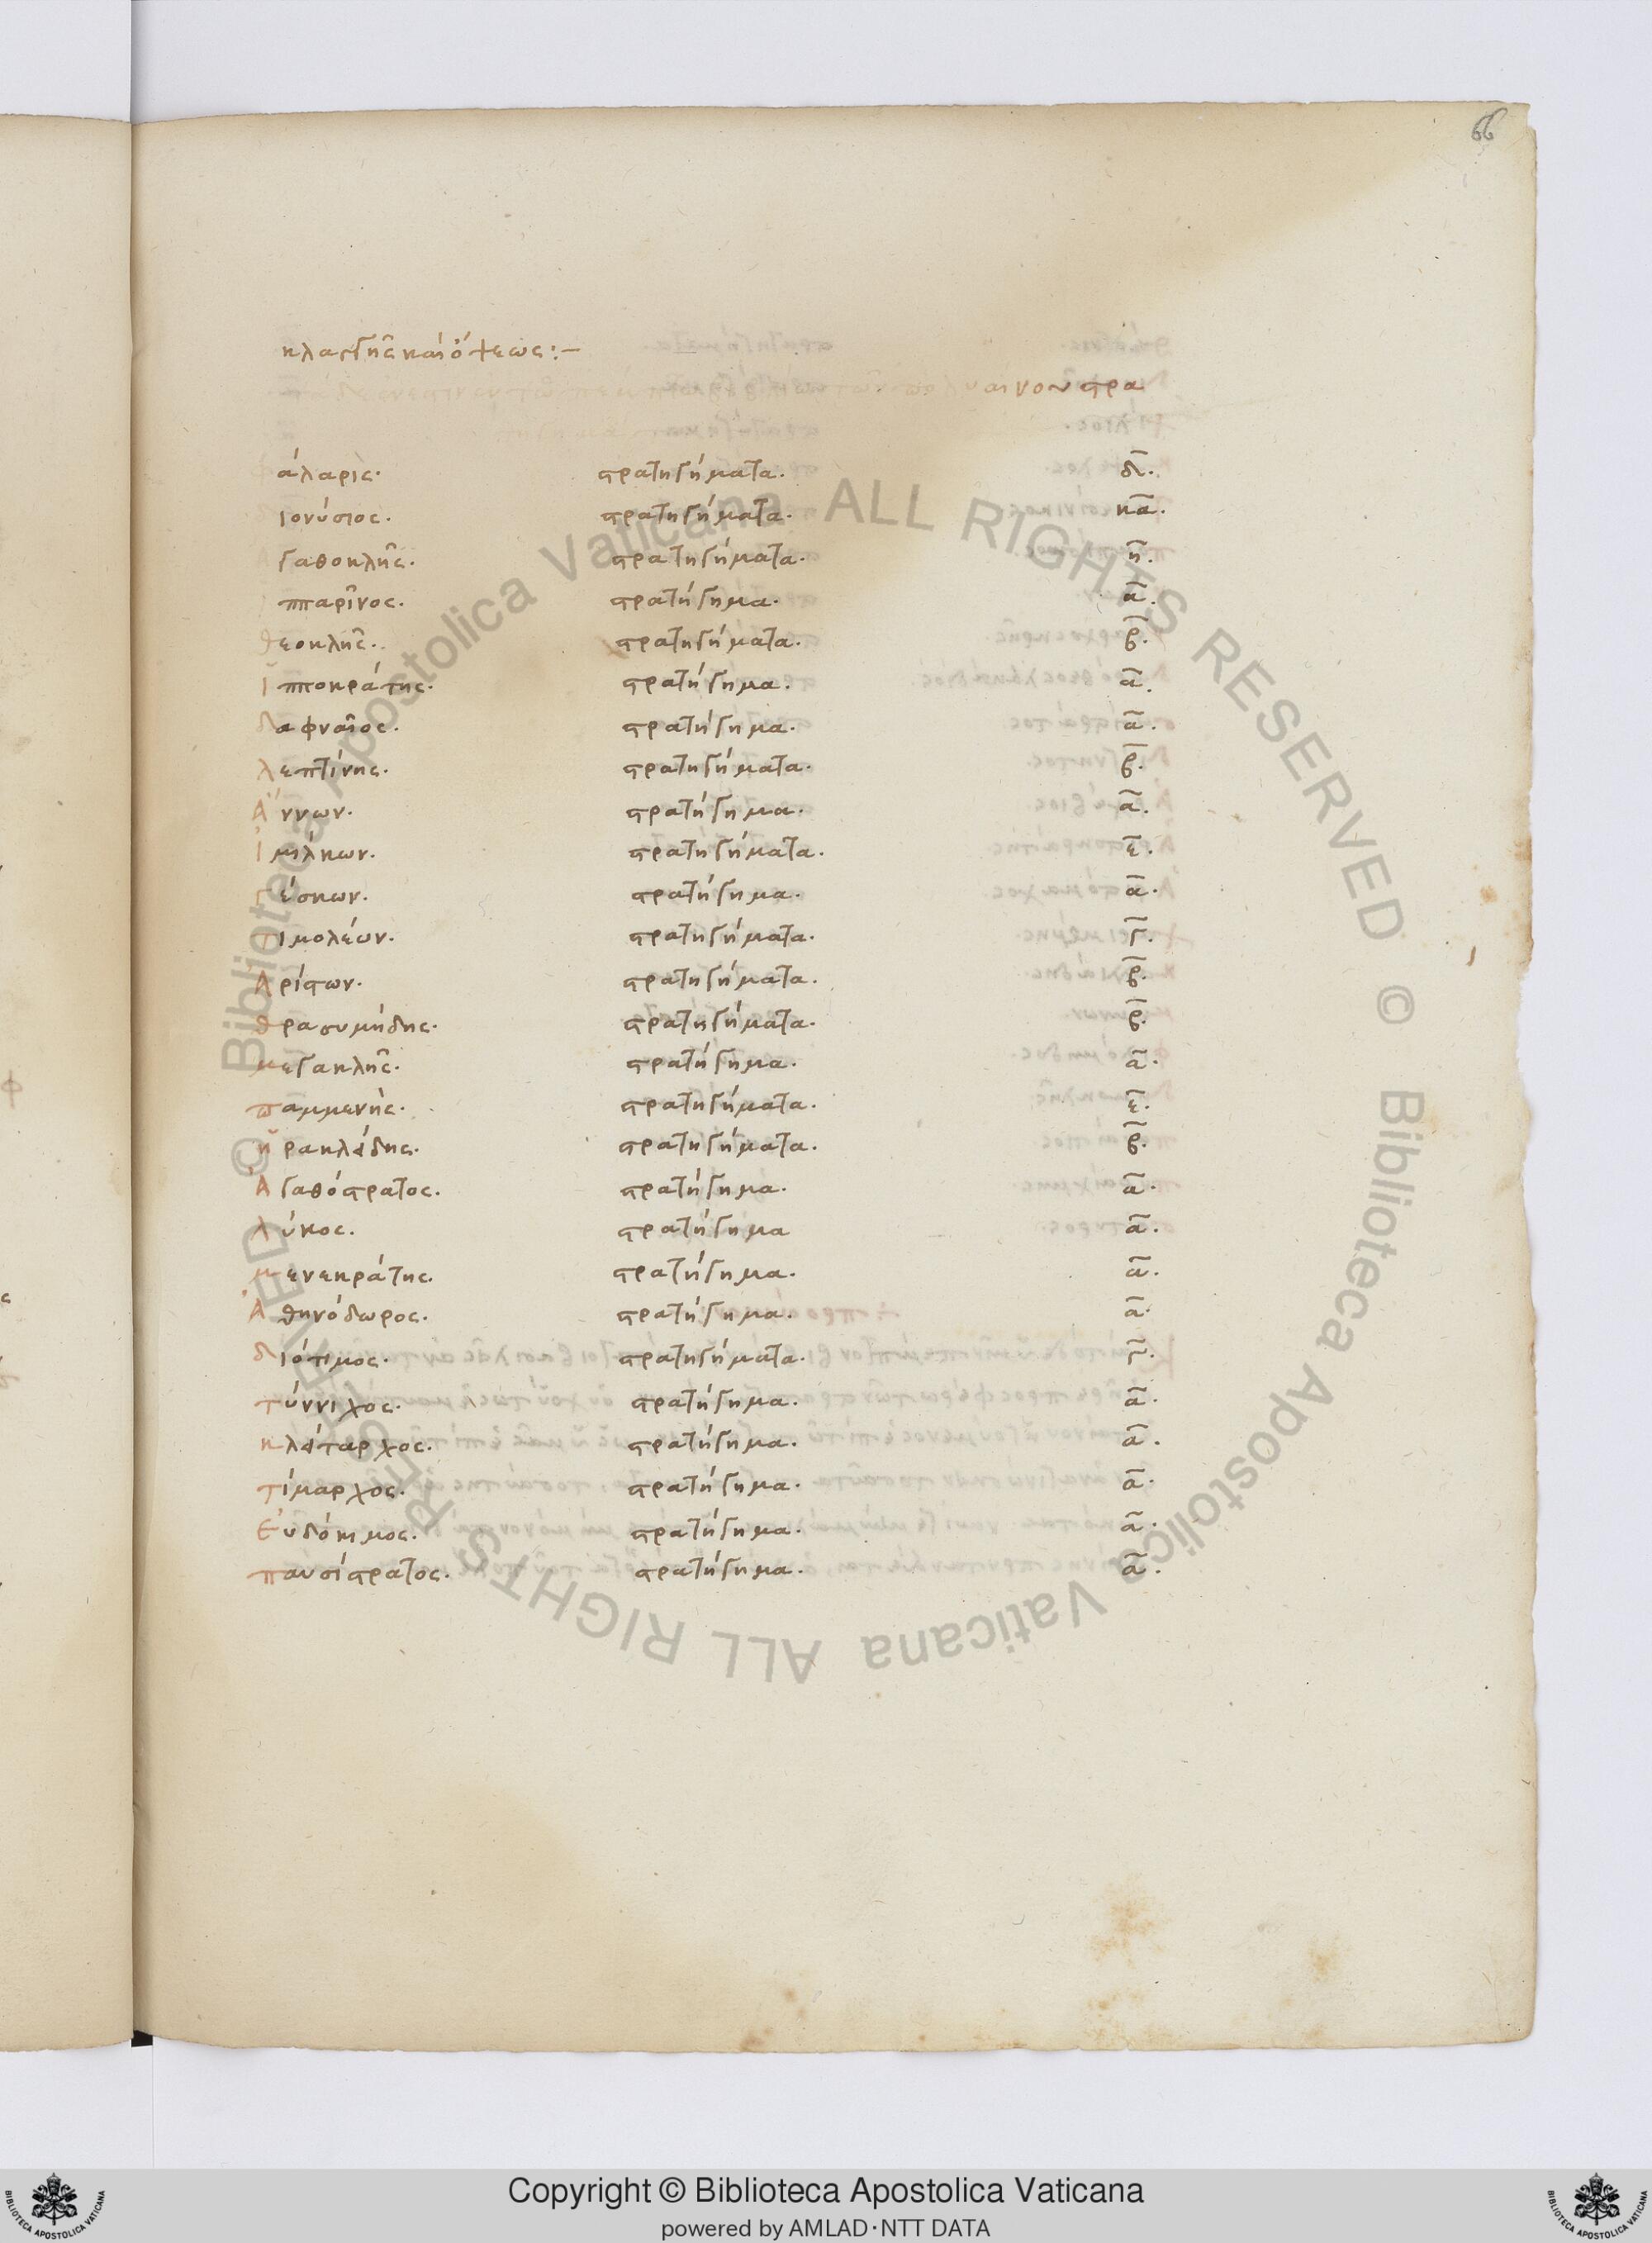 66
κλαπῆς καὶ ὄψεως :-
άλαρις. στρατηγήματα. δ̅.
ιονύσιος. στρατηγήματα. κα̅.
γαθοκλῆς. στρατηγήματα. η̅.
ππαρῖνος. στρατήγημα. α̅.
θεοκλῆς. στρατηγήματα. β̅.
ἱπποκράτης. στρατήγημα. α̅.
δαφναῖος. στρατήγημα. α̅.
λεπτίνης. στρατηγήματα. β̅.
Ἄννων. στρατήγημα. α̅.
Ἰμίλκων. στρατηγήματα. ε̅.
γέσκων. στρατήγημα. α̅.
τιμολέων. στρατηγήματα. γ̅.
Ἀρίστων. στρατηγήματα. β̅.
θρασυμήδης. στρατηγήματα. β̅.
μεγακλῆς. στρατήγημα. α̅.
παμμενὴς. στρατηγήματα. ε̅.
ἡρακλείδης. στρατηγήματα. β̅.
Ἀγαθόστρατος. στρατήγημα. α̅.
λύκος. στρατήγημα α̅.
μενεκράτης. στρατήγημα. α̅.
Ἀθηνόδωρος. στρατήγημα. α̅.
διότιμος. στρατηγήματα. γ̅.
τύννιχος. στρατήγημα. α̅.
κλείταρχος. στρατήγημα. α̅.
τίμαρχος. στρατήγημα. α̅.
Εὐδόκιμος. στρατήγημα. α̅.
παυσίστρατος. στρατήγημα. α̅.
© Biblioteca Apostolica Vaticana ALL RIGHTS RESERVED © Biblioteca Apostolica Vaticana ALL RIGHTS RESERVED
Copyright © Biblioteca Apostolica Vaticana
powered by AMLAD·NTT DATA
BIBLIOTECA APOSTOLICA VATICANA
BIBLIOTECA APOSTOLICA VATICANA